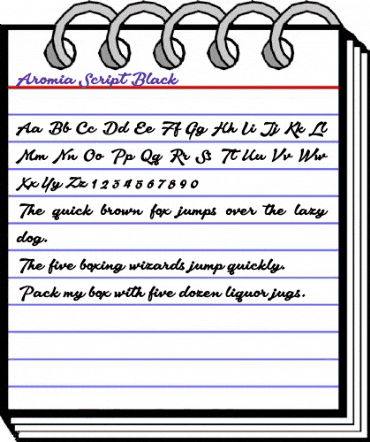 Aromia Script Black
Aa Bb Cc Dd Ee Ff Gg Hh Ii Jj Kk Ll
Mm Nn Oo Pp Qq Rr Ss Tt Uu Vv Ww
Xx Yy Zz 1 2 3 4 5 6 7 8 9 0
The quick brown fox jumps over the lazy
dog.
The five boxing wizards jump quickly.
Pack my box with five dozen liquor jugs.